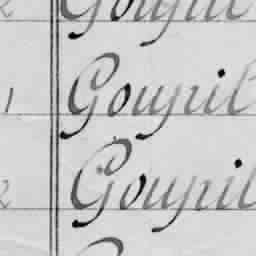 Goupil
1 Goupil
2 Goupil